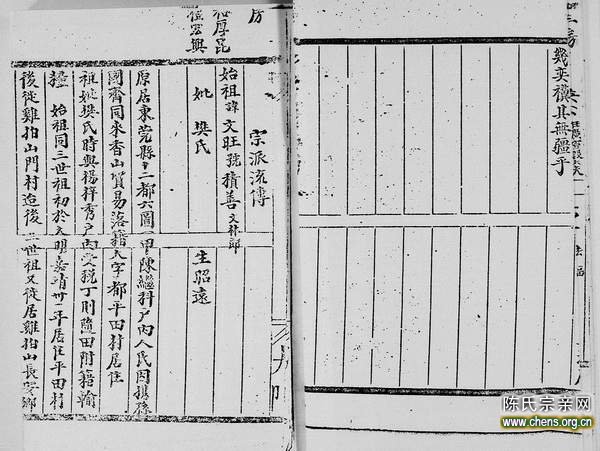 幾奕禩其無疆乎
宗派流傳
始祖諱文旺號積善文林郎
妣樊氏 生昭遠
原居東莞縣十二都六圖一甲陳繼科戶內人氏因携孫
國齊同來香山貿易落籍大字都平田村居住
祖妣樊氏時與楊梓秀戶內受稅丁則隨田附籍輸
糧 始祖同三世祖初於大明嘉靖卅一年居住平田村
後徙雞拍山門村迨後 三世祖又徙居雞拍山長安鄉
房
陈氏宗亲网
www.chens.org.cn